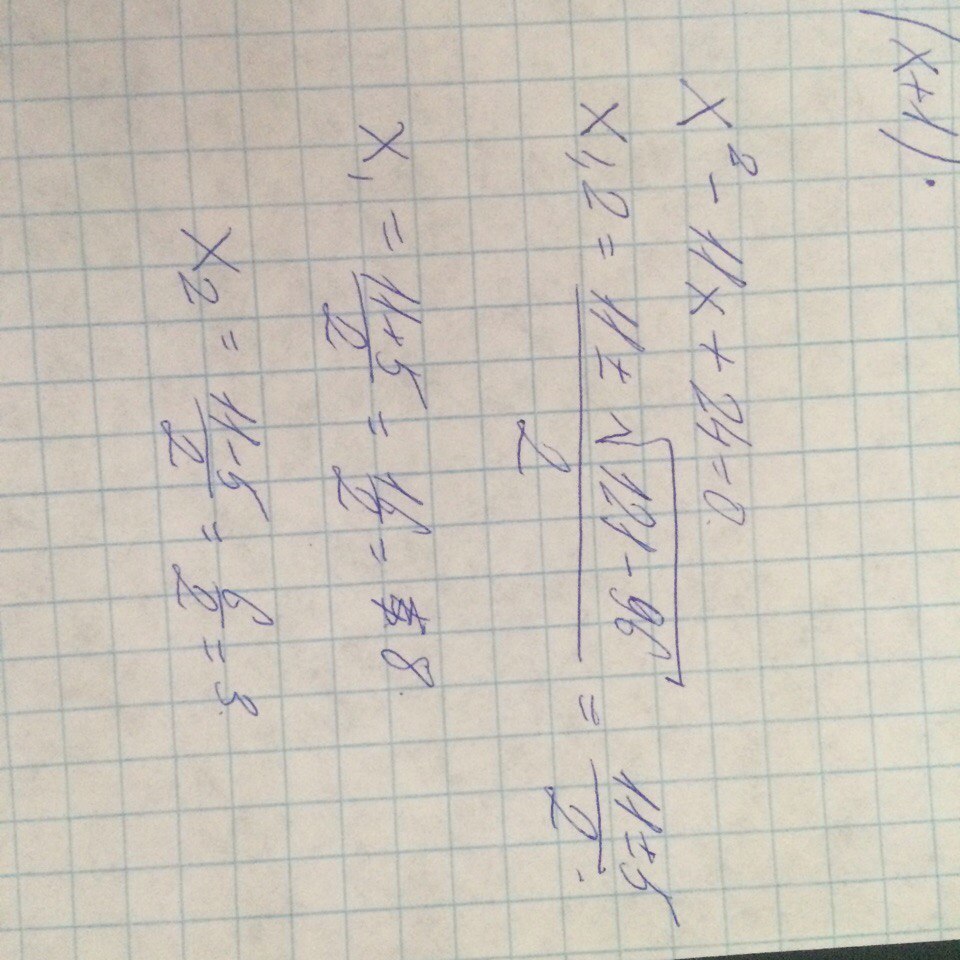 (x+1).
x² - 11x + 24 = 0.
x1,2 = (11 ± √(121 - 96))/2 = (11 ± 5)/2.
x1 = (11+5)/2 = 16/2 = 8.
x2 = (11-5)/2 = 6/2 = 3.